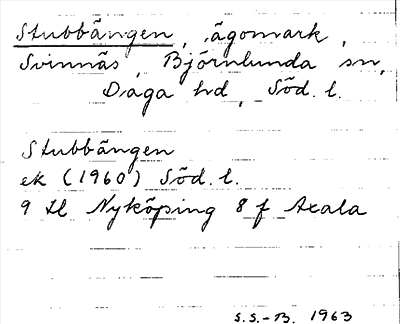 Stubbängen, ägomark,
Svinnäs, Björnlunda sn,
Daga hd, Söd. l.
Stubbängen
ek (1960) Söd. l.
9 H Nyköping 8 f Axala
S.S.-B. 1963